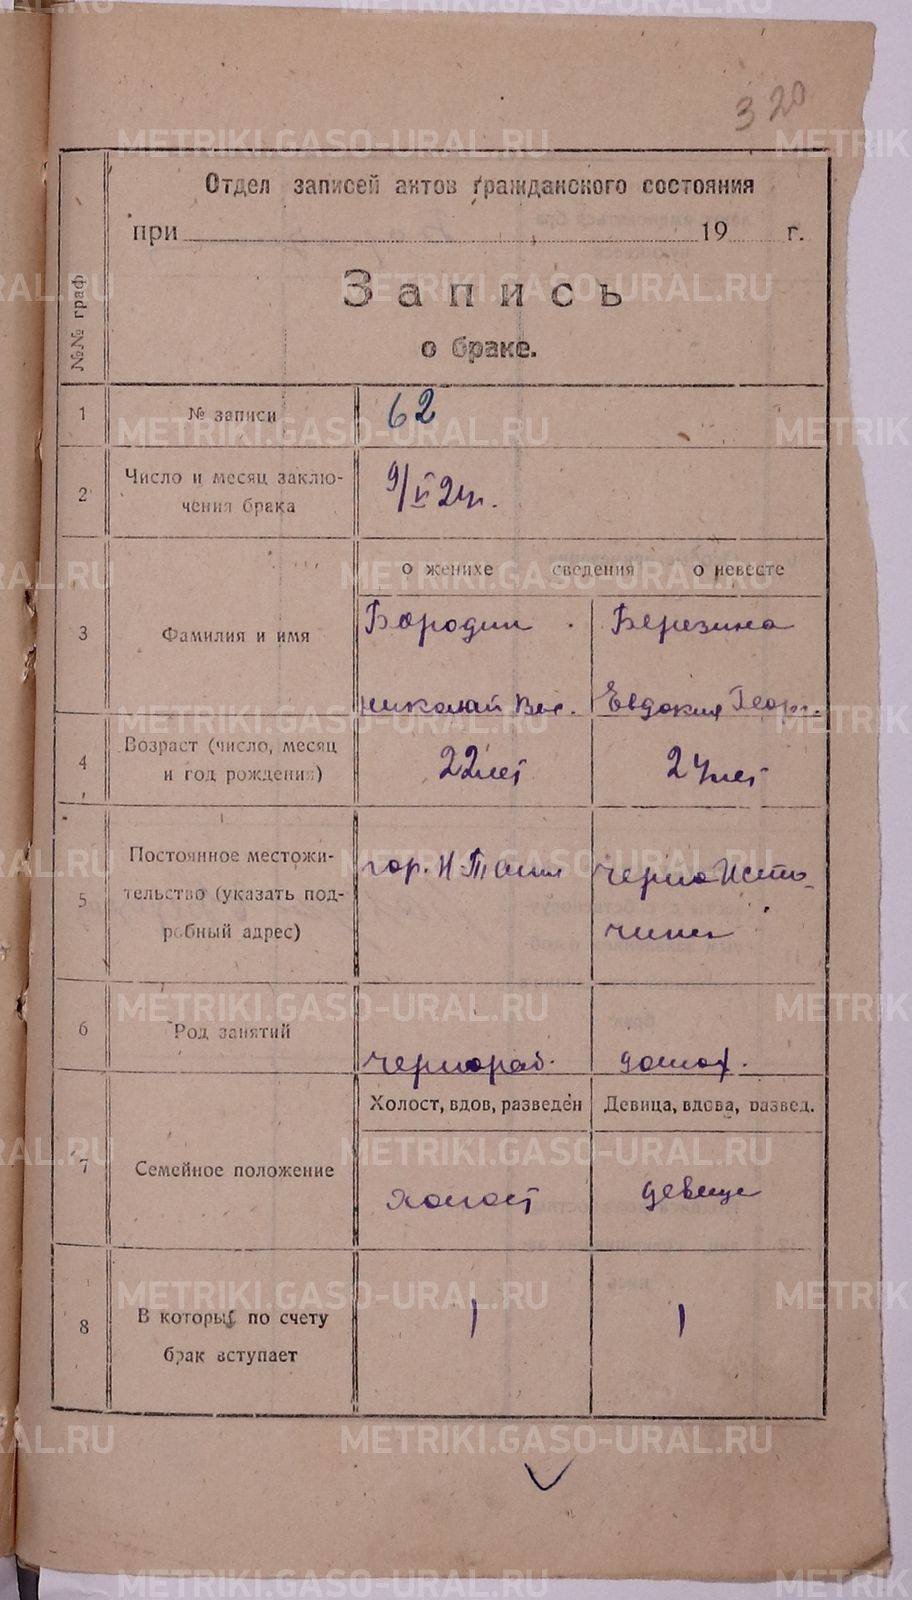 320
Отдел записей актов гражданского состояния
при 19 г.
№№ граф
Запись
о браке.
1 № записи 62
2 Число и месяц заклю-
чения брака 9/VI 24г.
о женихе сведения о невесте
3 Фамилия и имя Бородин Березина
Николай Вас. Евдокия Георг.
4 Возраст (число, месяц
и год рождения) 22 лет 24 лет
5 Постоянное местожи-
тельство (указать под-
робный адрес) гор. Н-Тагил Черно Исто-
чинск
6 Род занятий чернораб. домох.
Холост, вдов, разведён Девица, вдова, развед.
7 Семейное положение холост девица
8 В который по счету
брак вступает 1 1
METRIKI.GASO-URAL.RU